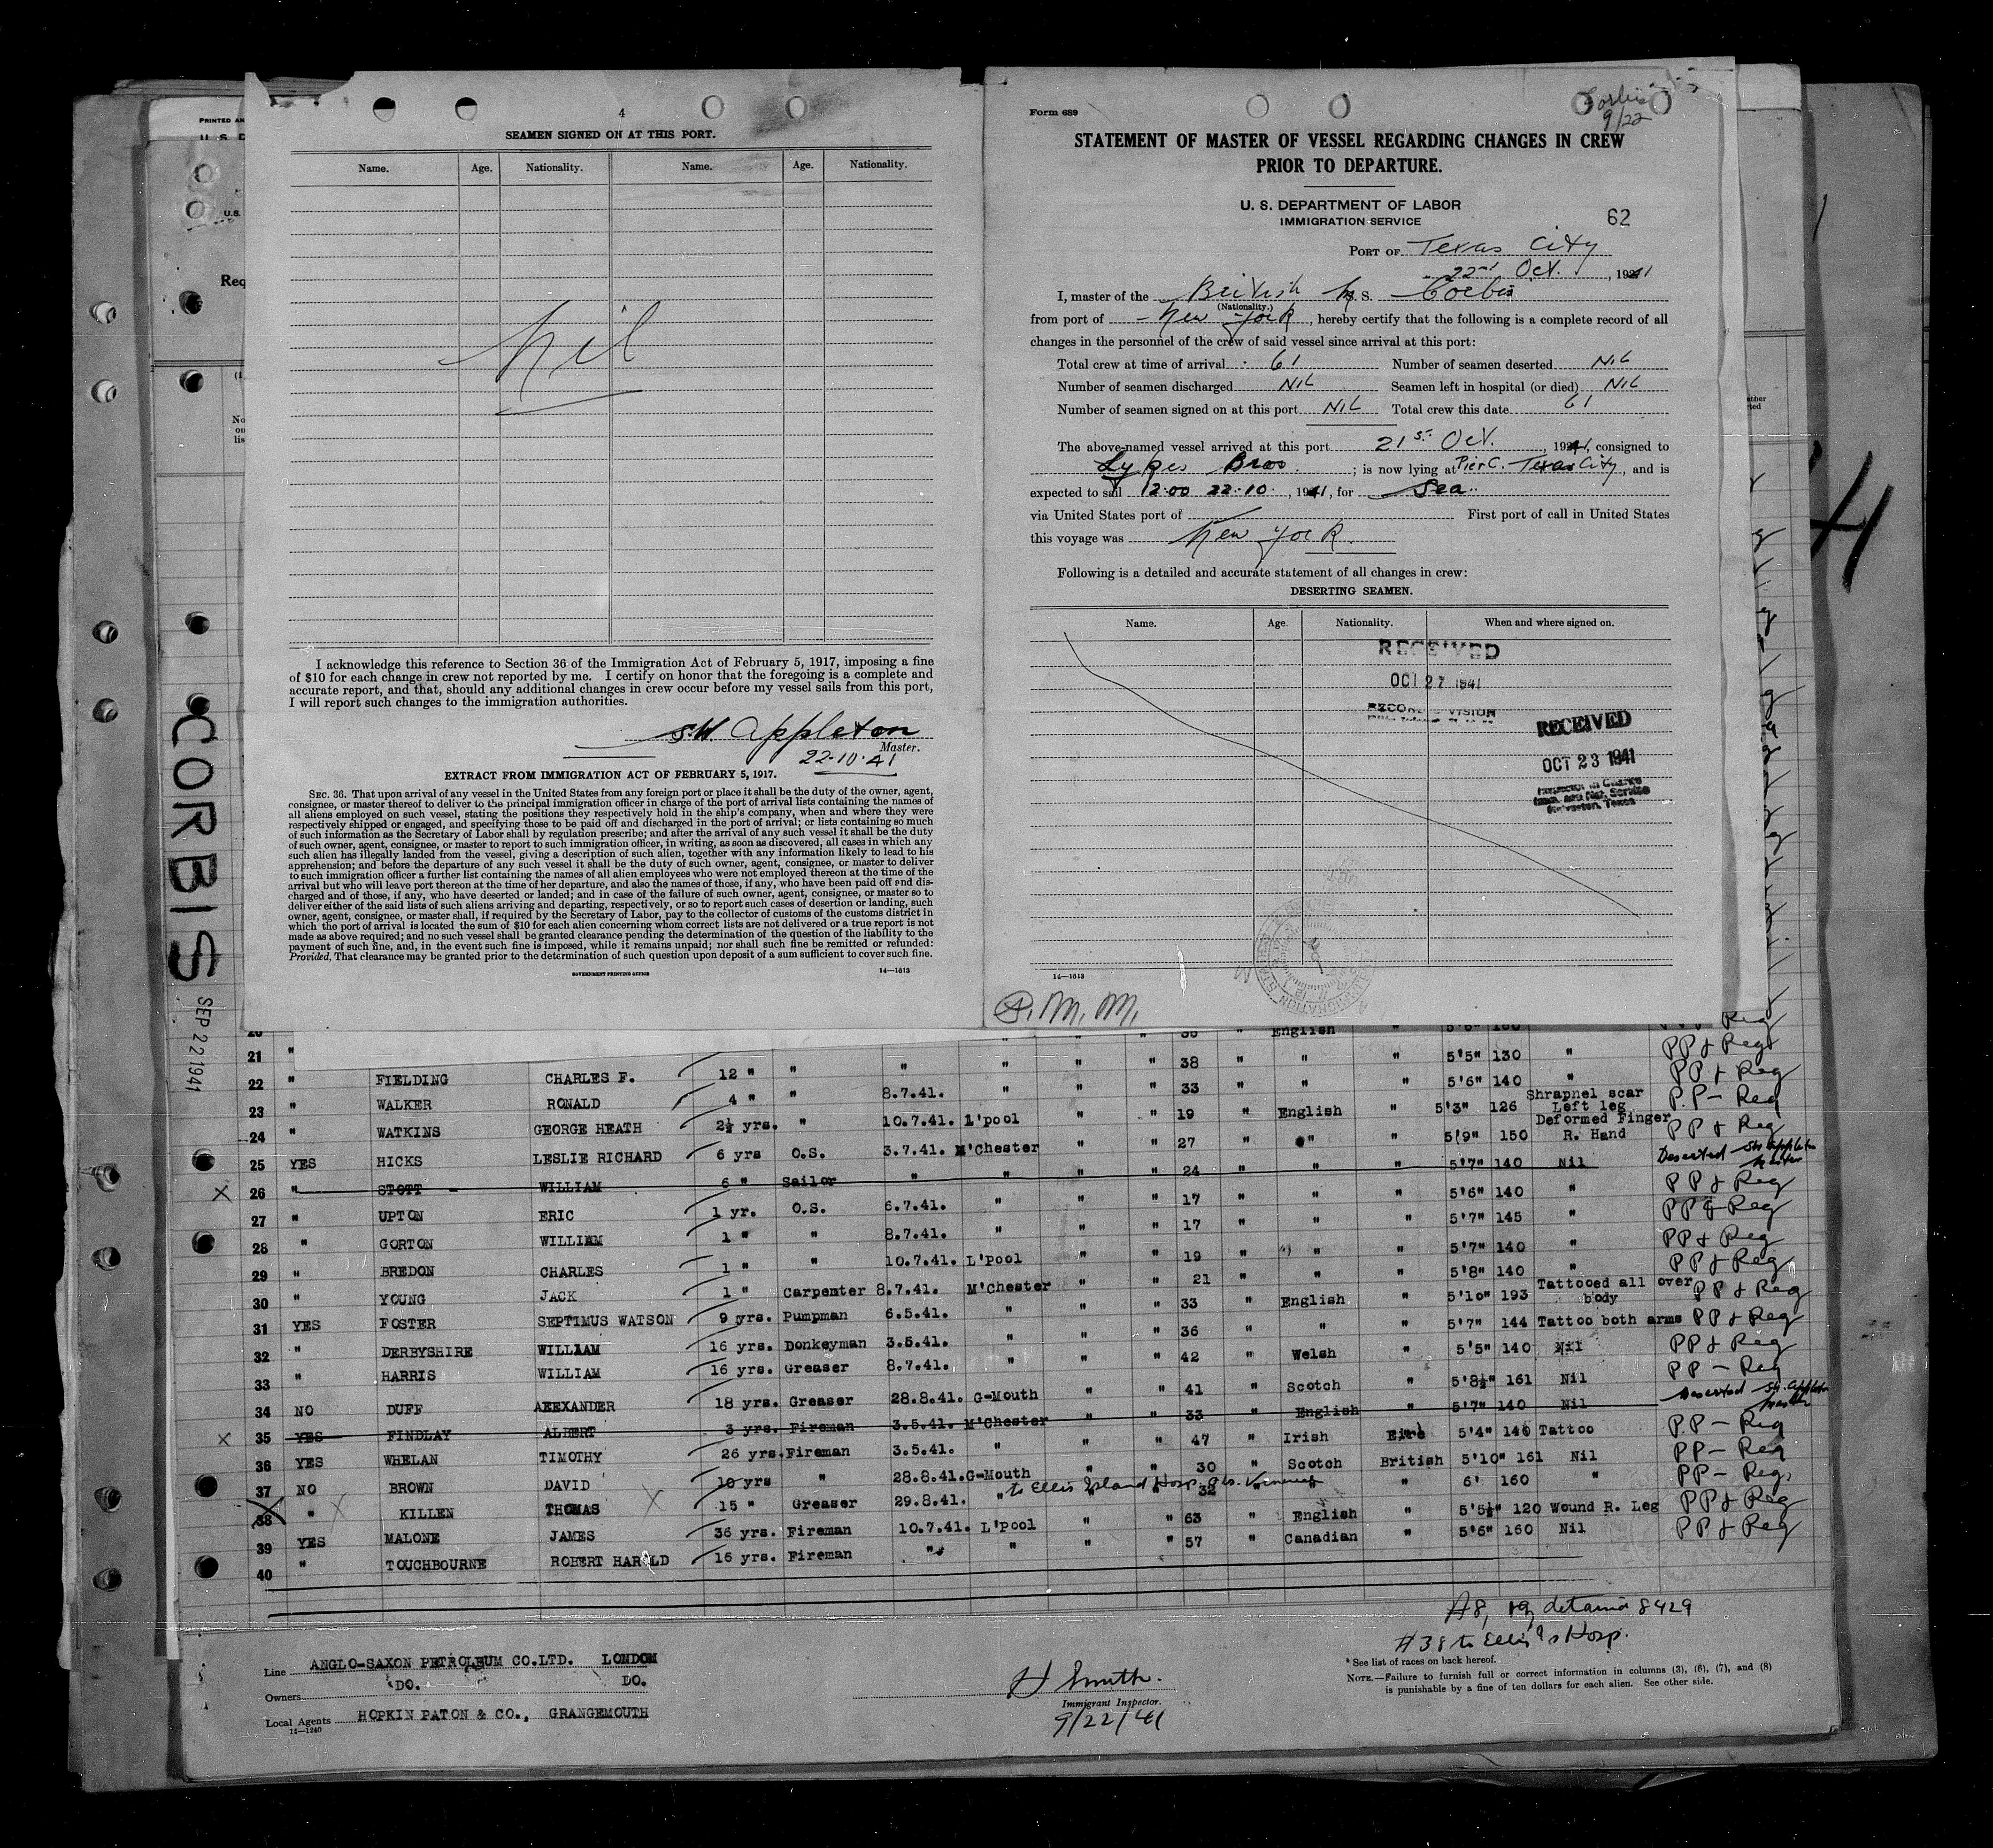 4
SEAMEN SIGNED ON AT THIS PORT.
Name. Age. Nationality. Name. Age. Nationality.
Nil
I acknowledge this reference to Section 36 of the Immigration Act of February 5, 1917, imposing a fine
of $10 for each change in crew not reported by me. I certify on honor that the foregoing is a complete and
accurate report, and that, should any additional changes in crew occur before my vessel sails from this port,
I will report such changes to the immigration authorities.
S.W. Appleton
Master.
22-10-41
EXTRACT FROM IMMIGRATION ACT OF FEBRUARY 5, 1917.
SEC. 36. That upon arrival of any vessel in the United States from any foreign port or place it shall be the duty of the owner, agent,
consignee, or master thereof to deliver to the principal immigration officer in charge of the port of arrival lists containing the names of
all aliens employed on such vessel, stating the positions they respectively hold in the ship's company, when and where they were
respectively shipped or engaged, and specifying those to be paid off and discharged in the port of arrival; or lists containing so much
of such information as the Secretary of Labor shall by regulation prescribe; and after the arrival of any such vessel it shall be the duty
of such owner, agent, consignee, or master to report to such immigration officer, in writing, as soon as discovered, all cases in which any
such alien has illegally landed from the vessel, giving a description of such alien, together with any information likely to lead to his
apprehension; and before the departure of any such vessel it shall be the duty of such owner, agent, consignee, or master to deliver
to such immigration officer a further list containing the names of all alien employees who were not employed thereon at the time of the
arrival but who will leave port thereon at the time of her departure, and also the names of those, if any, who have been paid off and dis-
charged and of those, if any, who have deserted or landed; and in case of the failure of such owner, agent, consignee, or master so to
deliver either of the said lists of such aliens arriving and departing, respectively, or so to report such cases of desertion or landing, such
owner, agent, consignee, or master shall, if required by the Secretary of Labor, pay to the collector of customs of the customs district in
which the port of arrival is located the sum of $10 for each alien concerning whom correct lists are not delivered or a true report is not
made as above required; and no such vessel shall be granted clearance pending the determination of the question of the liability to the
payment of such fine, and, in the event such fine is imposed, while it remains unpaid; nor shall such fine be remitted or refunded:
Provided, That clearance may be granted prior to the determination of such question upon deposit of a sum sufficient to cover such fine.
GOVERNMENT PRINTING OFFICE 14—1613
Form 689
Corbis
9/22
STATEMENT OF MASTER OF VESSEL REGARDING CHANGES IN CREW
PRIOR TO DEPARTURE.
U. S. DEPARTMENT OF LABOR
IMMIGRATION SERVICE
62
PORT OF Texas City
22nd Oct. , 1941
I, master of the British M.S. Corbis
(Nationality.)
from port of New York, hereby certify that the following is a complete record of all
changes in the personnel of the crew of said vessel since arrival at this port:
Total crew at time of arrival 61 Number of seamen deserted NIL
Number of seamen discharged NIL Seamen left in hospital (or died) NIL
Number of seamen signed on at this port NIL Total crew this date 61
The above-named vessel arrived at this port 21st Oct. , 1941, consigned to
Lykes Bros. ; is now lying at Pier C. Texas City, and is
expected to sail 12.00 22.10. , 1941, for Sea.
via United States port of First port of call in United States
this voyage was New York.
Following is a detailed and accurate statement of all changes in crew:
DESERTING SEAMEN.
Name. Age. Nationality. When and where signed on.
RECEIVED
OCT 27 1941
RECEIVED
OCT 23 1941
Inspector in Charge
Imm. and Nat. Service
Galveston, Texas
14—1613
P.M.M.
CORBIS
SEP 22 1941
PRINTED AN
Req
20 " " " 38 " English 5'6" 160 Reg
21 " " " " " " 38 " " " 5'5" 130 " PP & Reg
22 " FIELDING CHARLES F. 12 " " " " " " 33 " " " 5'6" 140 " PP & Reg
23 " WALKER RONALD 4 " " 8.7.41. " " " 19 " English " 5'3" 126 Shrapnel scar Left leg P.P - Reg
24 " WATKINS GEORGE HEATH 2½ yrs. " 10.7.41. L'pool " " 27 " " " 5'9" 150 Deformed Finger R. Hand PP & Reg
25 YES HICKS LESLIE RICHARD 6 yrs O.S. 3.7.41. M'Chester " " 24 " " " 5'7" 140 Nil Deserted SW Appleton Master
X 26 " STOTT - WILLIAM 6 " Sailor " " " " 17 " " " 5'6" 140 " PP & Reg
27 " UPTON ERIC 1 yr. O.S. 6.7.41. " " " 17 " " " 5'7" 145 " PP & Reg
28 " GORTON WILLIAM 1 " " 8.7.41. " " " 19 " " " 5'7" 140 " PP & Reg
29 " BREDON CHARLES 1 " " 10.7.41. L'pool " " 21 " " " 5'8" 140 " PP & Reg
30 " YOUNG JACK 1 " Carpenter 8.7.41. M'Chester " " 33 " English " 5'10" 193 Tattooed all over body PP & Reg
31 YES FOSTER SEPTIMUS WATSON 9 yrs. Pumpman 6.5.41. " " " 36 " " " 5'7" 144 Tattoo both arms PP & Reg
32 " DERBYSHIRE WILLIAM 16 yrs. Donkeyman 3.5.41. " " " 42 " Welsh " 5'5" 140 Nil PP & Reg
33 " HARRIS WILLIAM 16 yrs. Greaser 8.7.41. " " " 41 " Scotch " 5'8½" 161 Nil PP - Reg
34 NO DUFF ALEXANDER 18 yrs. Greaser 28.8.41. G-Mouth " " 33 " English " 5'7" 140 Nil Deserted SW. Appleton Master
X 35 YES FINDLAY ALBERT 3 yrs. Fireman 3.5.41. M'Chester " " 47 " Irish Eire 5'4" 146 Tattoo P.P - Reg
36 YES WHELAN TIMOTHY 26 yrs. Fireman 3.5.41. " " " 30 " Scotch British 5'10" 161 Nil PP - Reg
37 NO BROWN DAVID 10 yrs " 28.8.41. G-Mouth " " 32 " " " 6' 160 " PP - Reg.
to Ellis Island Hosp.
38 " KILLEN THOMAS 15 " Greaser 29.8.41. " " " 63 " English " 5'5½" 120 Wound R. Leg PP & Reg
39 YES MALONE JAMES 36 yrs. Fireman 10.7.41. L'pool " " 57 " Canadian " 5'6" 160 Nil PP & Reg
40 " TOUCHBOURNE ROBERT HAROLD 16 yrs. Fireman " "
detained 8429
#38 to Ellis Is Hosp.
Line ANGLO-SAXON PETROLEUM CO.LTD. LONDON
Owners DO. DO.
Local Agents HOPKIN PATON & CO., GRANGEMOUTH
14—1240
H Smith.
Immigrant Inspector.
9/22/41
* See list of races on back hereof.
NOTE.—Failure to furnish full or correct information in columns (3), (6), (7), and (8)
is punishable by a fine of ten dollars for each alien. See other side.